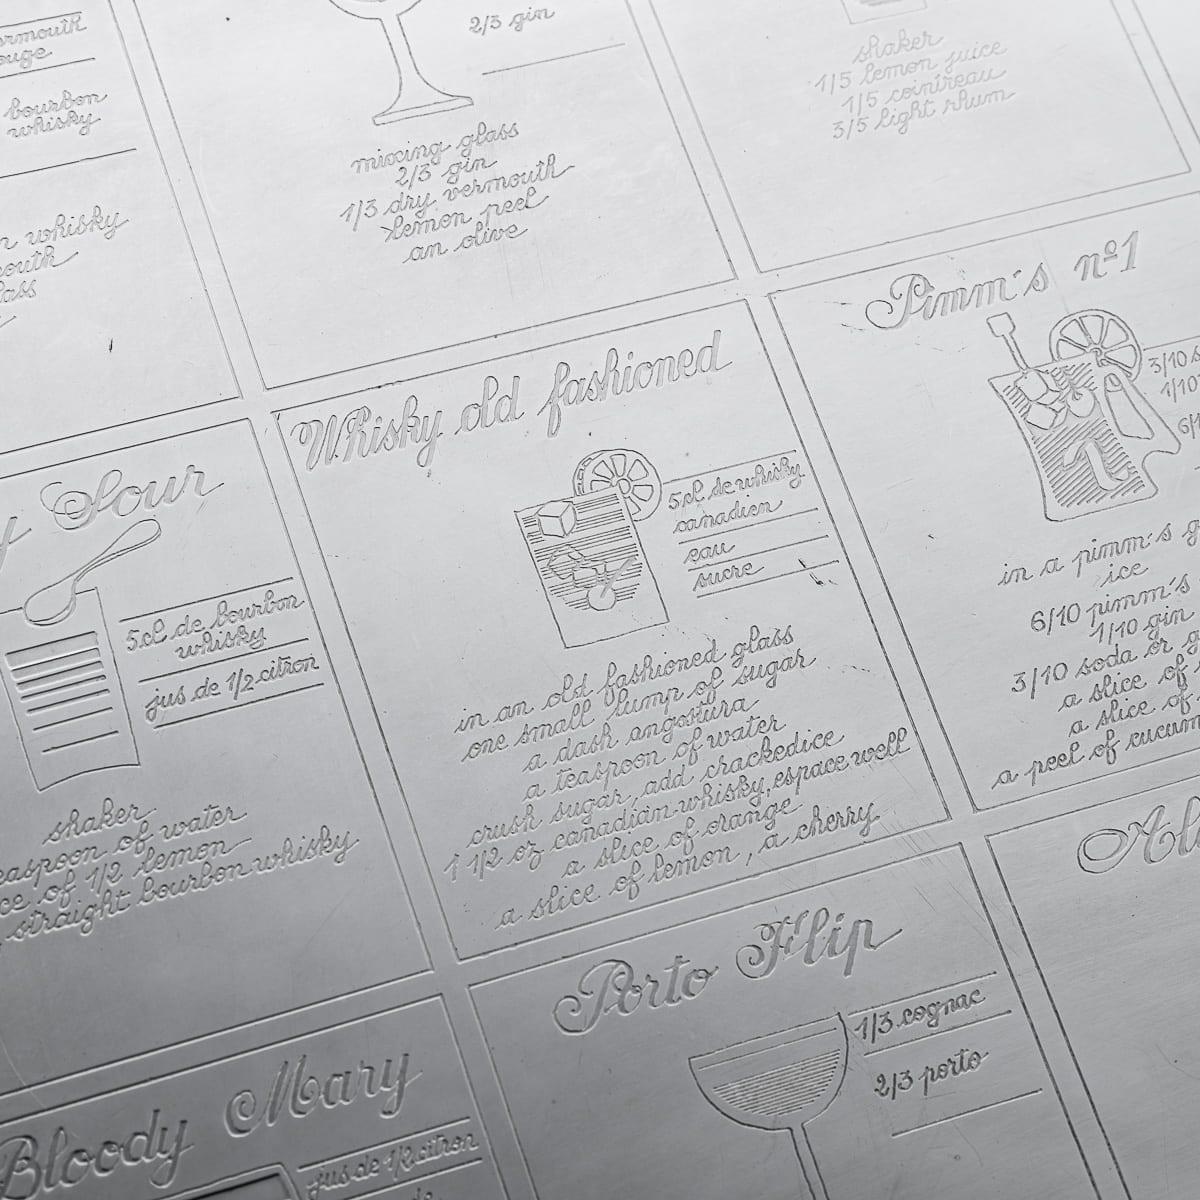 bourbon
whisky
whisky
2/3 gin
mixing glass
2/3 gin
1/3 dry vermouth
lemon peel
an olive
shaker
1/5 lemon juice
1/5 cointreau
3/5 light rhum
Sour
5cl de bourbon
whisky
jus de 1/2 citron
shaker
teaspoon of water
of 1/2 lemon
straight bourbon whisky
Whisky old fashioned
5cl de whisky
canadien
eau
sucre
in an old fashioned glass
one small lump of sugar
a dash angostura
a teaspoon of water
crush sugar, add crackedice
1 1/2 oz canadian whisky, espace well
a slice of orange
a slice of lemon, a cherry
Pimm's nº1
3/10
1/10
1
in a pimm's
ice
6/10 pimm's
1/10 gin
3/10 soda or
a slice of
a slice of
a peel of
Bloody Mary
jus de 1/2 citron
de
Porto Flip
1/3 cognac
2/3 porto